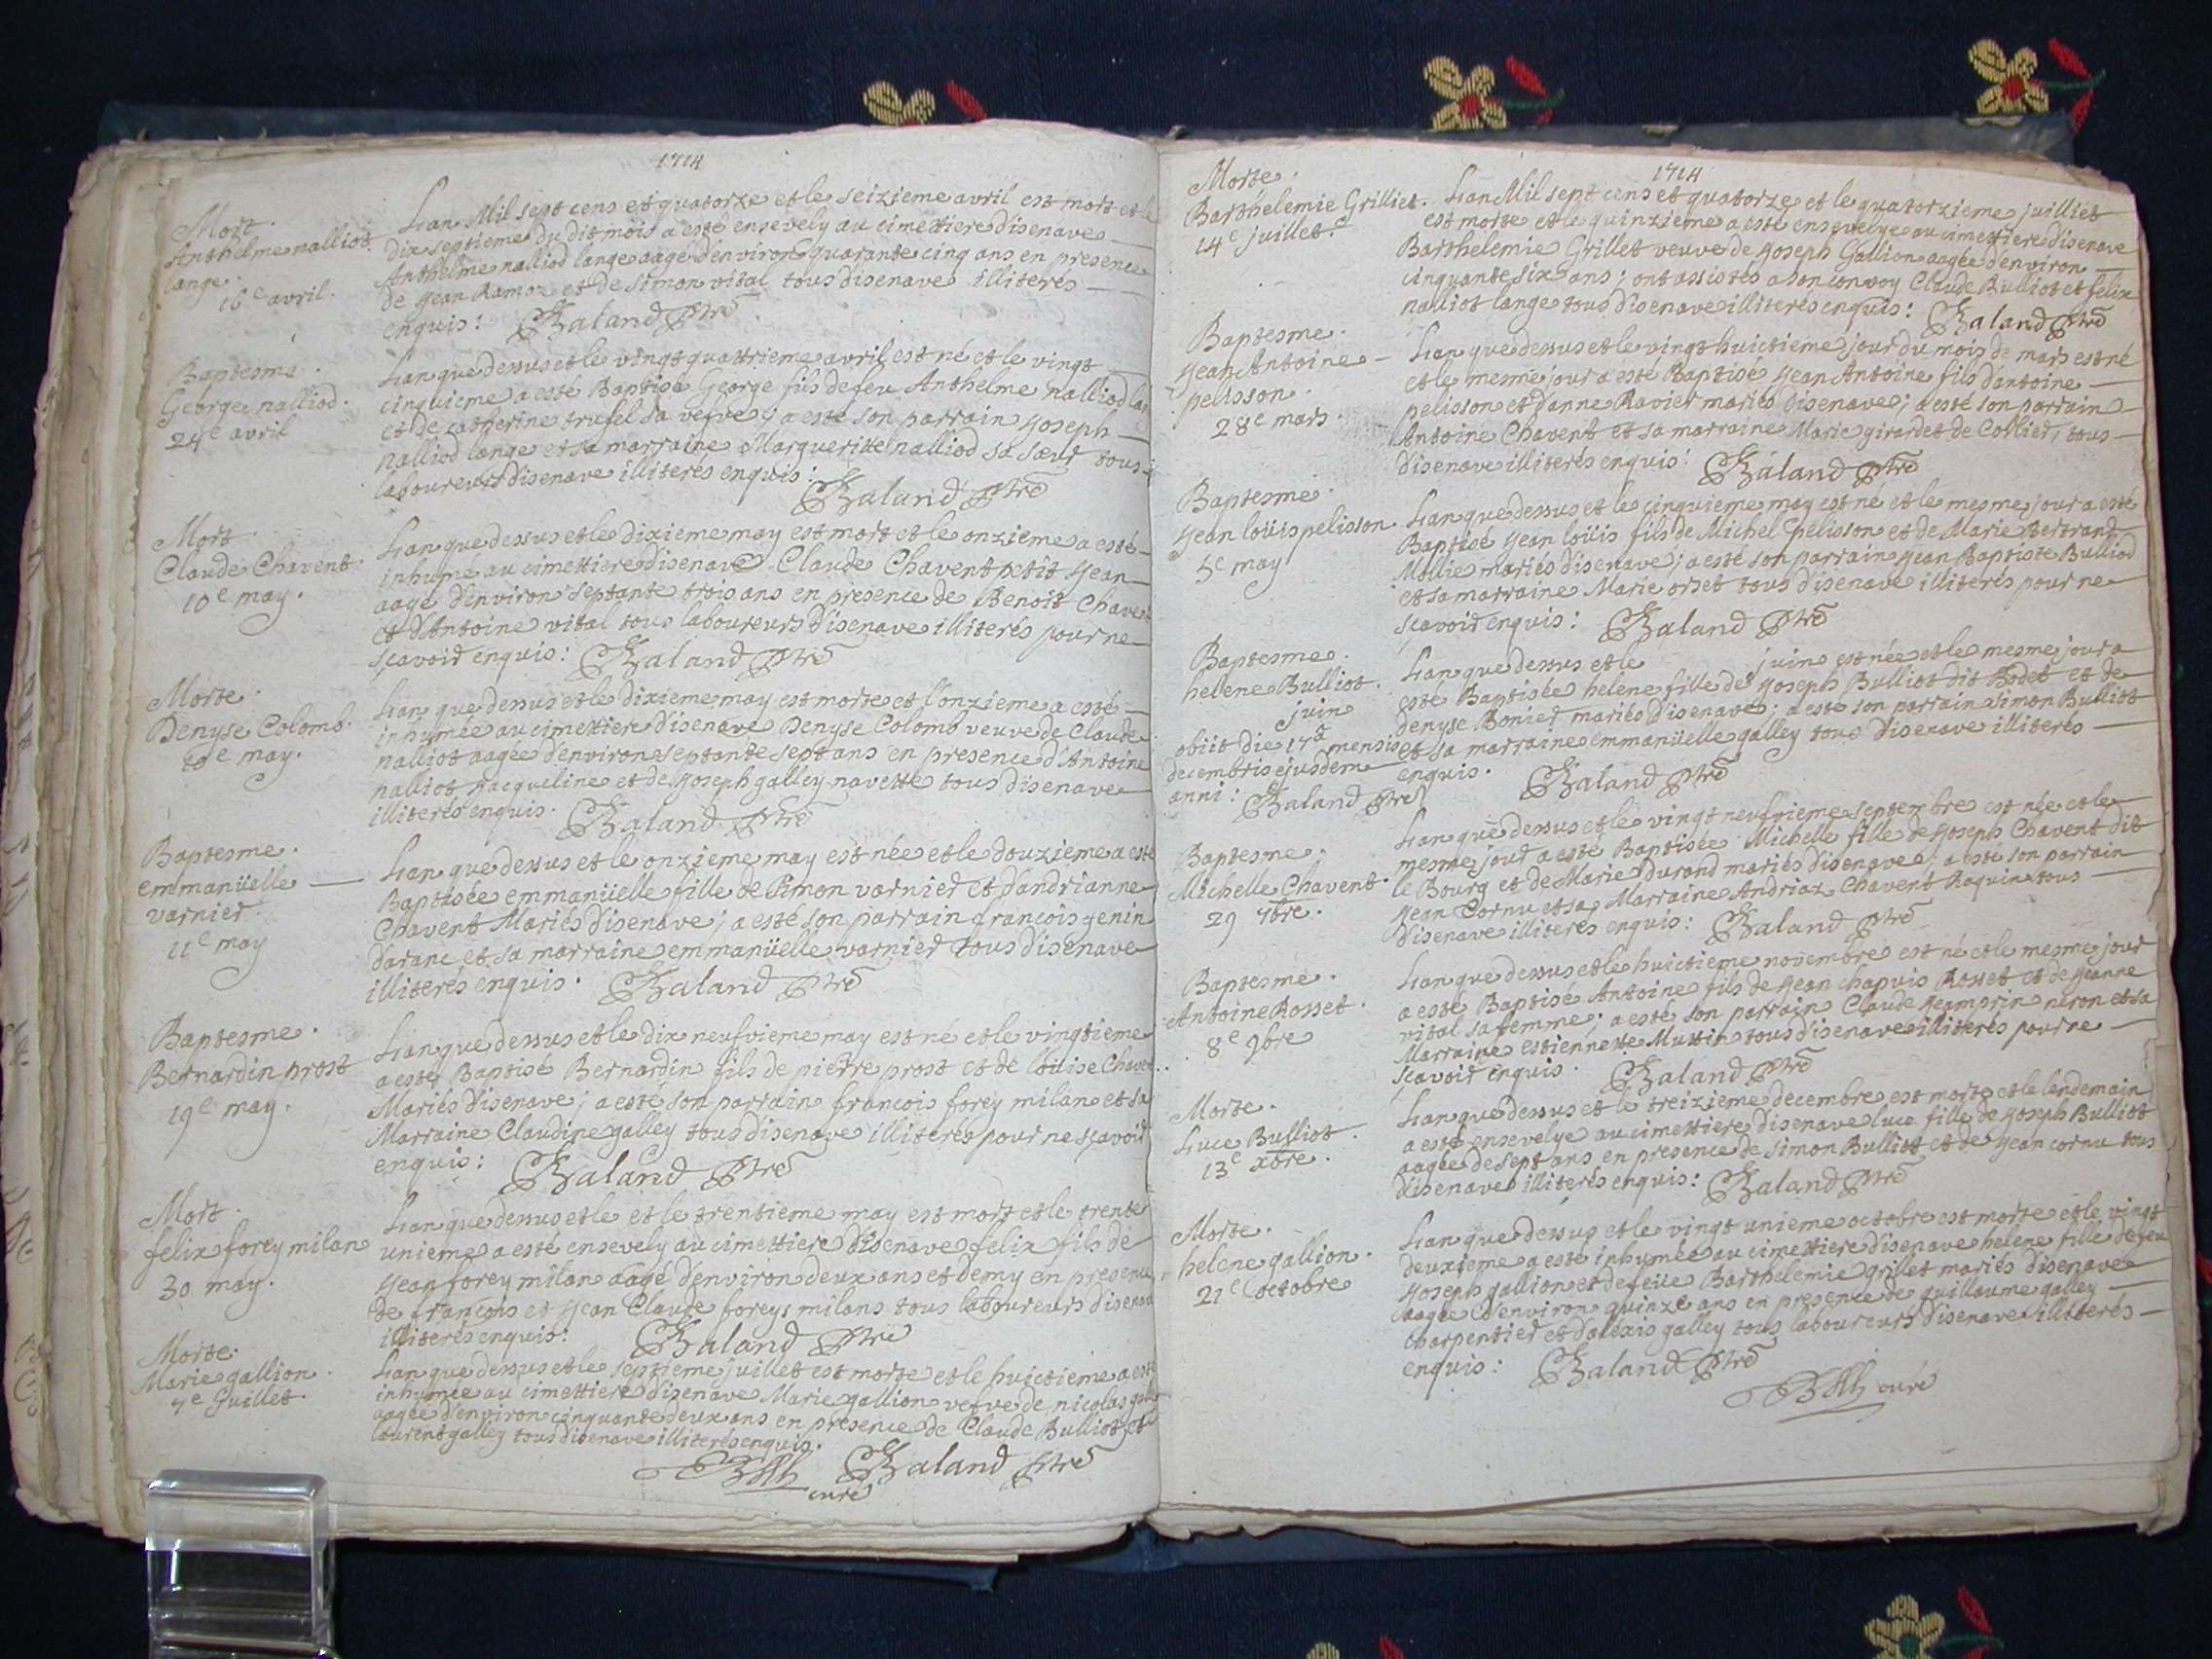 1714
Mort.
Anthelme nalliod
lange.
16e avril.
Lan Mil sept cens et quatorze et le seizieme avril est mort et le
dix septieme du dit mois a esté ensevely au cimettiere disenave
Anthelme nalliod lange aagé denviron quarante cinq ans en presence
de Jean Ramoz et de simon vital tous disenave illiterés
enquis: Baland ptre
Baptesme.
George nalliod.
24e avril
Lan que dessus et le vingt quattrieme avril est né et le vingt
cinquieme a esté Baptisé George fils de feu Anthelme nalliod
et de catherine trufel sa vefve; a esté son parrain Joseph
nalliod lange et sa marraine Marguerite nalliod sa sœur tous
laboureurs disenave illiterés enquis:
Baland ptre
Mort.
Claude Chavent.
10e may.
Lan que dessus et le dixieme may est mort et le onzieme a esté
inhumé au cimettiere disenave Claude Chavent petit Jean
aagé denviron septante trois ans en presence de Benoit Chavent
et dAntoine vital tous laboureurs disenave illiterés pour ne
sçavoir enquis: Baland ptre
Morte.
Denyse Colomb.
10e may.
Lan que dessus et le dixieme may est morte et lonzieme a esté
inhumée au cimettiere disenave Denyse Colomb veuve de Claude
nalliot aagée denviron septante sept ans en presence dAntoine
nalliot Jacqueline et de Joseph galley navette tous disenave
illiterés enquis. Baland ptre
Baptesme.
emmanüelle
varnier.
11e may
Lan que dessus et le onzieme may est née et le douzieme a esté
Baptisée emmanüelle fille de Simon varnier et dandrianne
Chavent Mariés disenave; a esté son parrain francois genin
daranc et sa marraine emmanüelle varnier tous disenave
illiterés enquis. Baland ptre
Baptesme.
Bernardin prost
19e may.
Lan que dessus et le dix neufvieme may est né et le vingtieme
a esté Baptisé Bernardin fils de pierre prost et de
Mariés disenave; a esté son parrain francois forey milan et sa
Marraine Claudine galley tous disenave illiterés pour ne sçavoir
enquis: Baland ptre
Mort.
felix forey milan
30 may.
Lan que dessus et le et le trentieme may est mort et le trente
unieme a esté ensevely au cimettiere disenave felix fils de
Jean forey milan aagé denviron deux ans et demy en presence
de francois et Jean Claude foreys milans tous laboureurs disenave
illiterés enquis: Baland ptre
Morte.
Marie gallion.
7e Juillet.
Lan que dessus et le septieme juillet est morte et le huictieme a esté
inhumée au cimettiere disenave Marie gallion vefve de nicolas
aagée denviron cinquante deux ans en presence de Claude Bulliot et
laurent galley tous disenave illiterés enquis.
curé Baland ptre
1714
Morte.
Barthelemie Grilliet.
14e juillet.
Lan Mil sept cens et quatorze et le quatorzieme juilliet
est morte et le quinzieme a esté ensevelye au cimettiere disenave
Barthelemie Grillet veuve de Joseph Gallion aagée denviron
cinquante six ans; ont assistés a son convoy Claude Bulliot et felix
nalliot lange tous disenave illiterés enquis: Baland ptre
Baptesme.
Jean Antoine
pelisson.
28e mars.
Lan que dessus et le vingt huictieme jour du mois de mars est né
et le mesme jour a esté Baptisé Jean Antoine fils dantoine
pelisson et danne Ravier mariés disenave; a esté son parrain
Antoine Chavent et sa marraine Marie girardet de Collier, tous
disenave illiterés enquis: Baland ptre
Baptesme.
Jean loüis pelisson.
5e may
Lan que dessus et le cinquieme may est né et le mesme jour a esté
Baptisé Jean loüis fils de Michel pelisson et de Marie Bertrand
Mollie mariés disenave; a esté son parrain Jean Baptiste Bulliod
et sa marraine Marie orset tous disenave illiterés pour ne
sçavoir enquis: Baland ptre
Baptesme.
helene Bulliot.
juin
obiit die 17a mensis
decembris ejusdem
anni: Baland ptre
Lan que dessus et le juin est née et le mesme jour a
esté Baptisée helene fille de Joseph Bulliot dit Bodet et de
denyse Bonier mariés disenave; a esté son parrain simon Bulliot
et sa marraine emmanüelle galley tous disenave illiterés
enquis. Baland ptre
Baptesme.
Michelle Chavent.
29 7bre.
Lan que dessus et le vingt neufvieme septembre est née et le
mesme jour a esté Baptisée Michelle fille de Joseph Chavent dit
le Bourg et de Marie Durand mariés disenave; a esté son parrain
Jean Cornu et sa Marraine Andriaz Chavent Raquin tous
disenave illiterés enquis: Baland ptre
Baptesme.
Antoine Rosset.
8e 9bre
Lan que dessus et le huictieme novembre est né et le mesme jour
a esté Baptisé Antoine fils de Jean chapuis Rosset et de Jeanne
vital sa femme; a esté son parrain Claude Jeamprin neron et sa
Marraine estiennette Muttin tous disenave illiterés pour ne
sçavoir enquis. Baland ptre
Morte.
Luce Bulliot.
13e xbre.
Lan que dessus et le treizieme decembre est morte et le lendemain
a esté ensevelye au cimettiere disenave luce fille de Joseph Bulliot
aagée de sept ans en presence de simon Bulliot et de Jean cornu tous
disenave illiterés enquis: Baland ptre
Morte.
helene gallion.
21e octobre
Lan que dessus et le vingt unieme octobre est morte et le vingt
deuxieme a esté inhumée au cimettiere disenave helene fille de feu
Joseph gallion et de feüe Barthelemie grillet mariés disenave
aagée denviron quinze ans en presence de guillaume galley
charpentier et dalexis galley tous laboureurs disenave illiterés
enquis: Baland ptre
curé